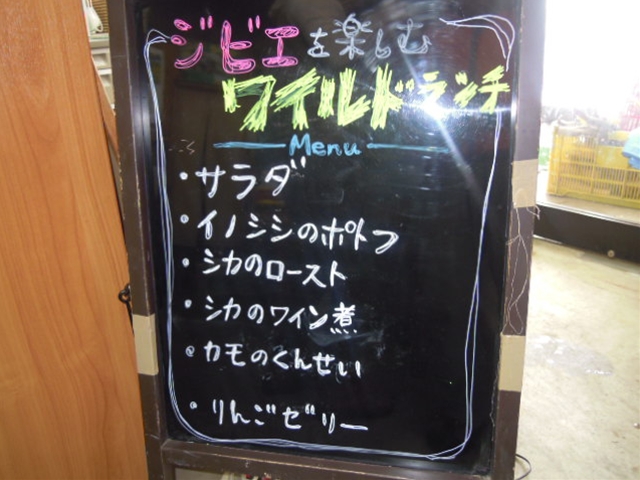 ジビエを楽しむ
ワイルドランチ
Menu
・サラダ
・イノシシのポトフ
・シカのロースト
・シカのワイン煮
・カモのくんせい
・りんごゼリー